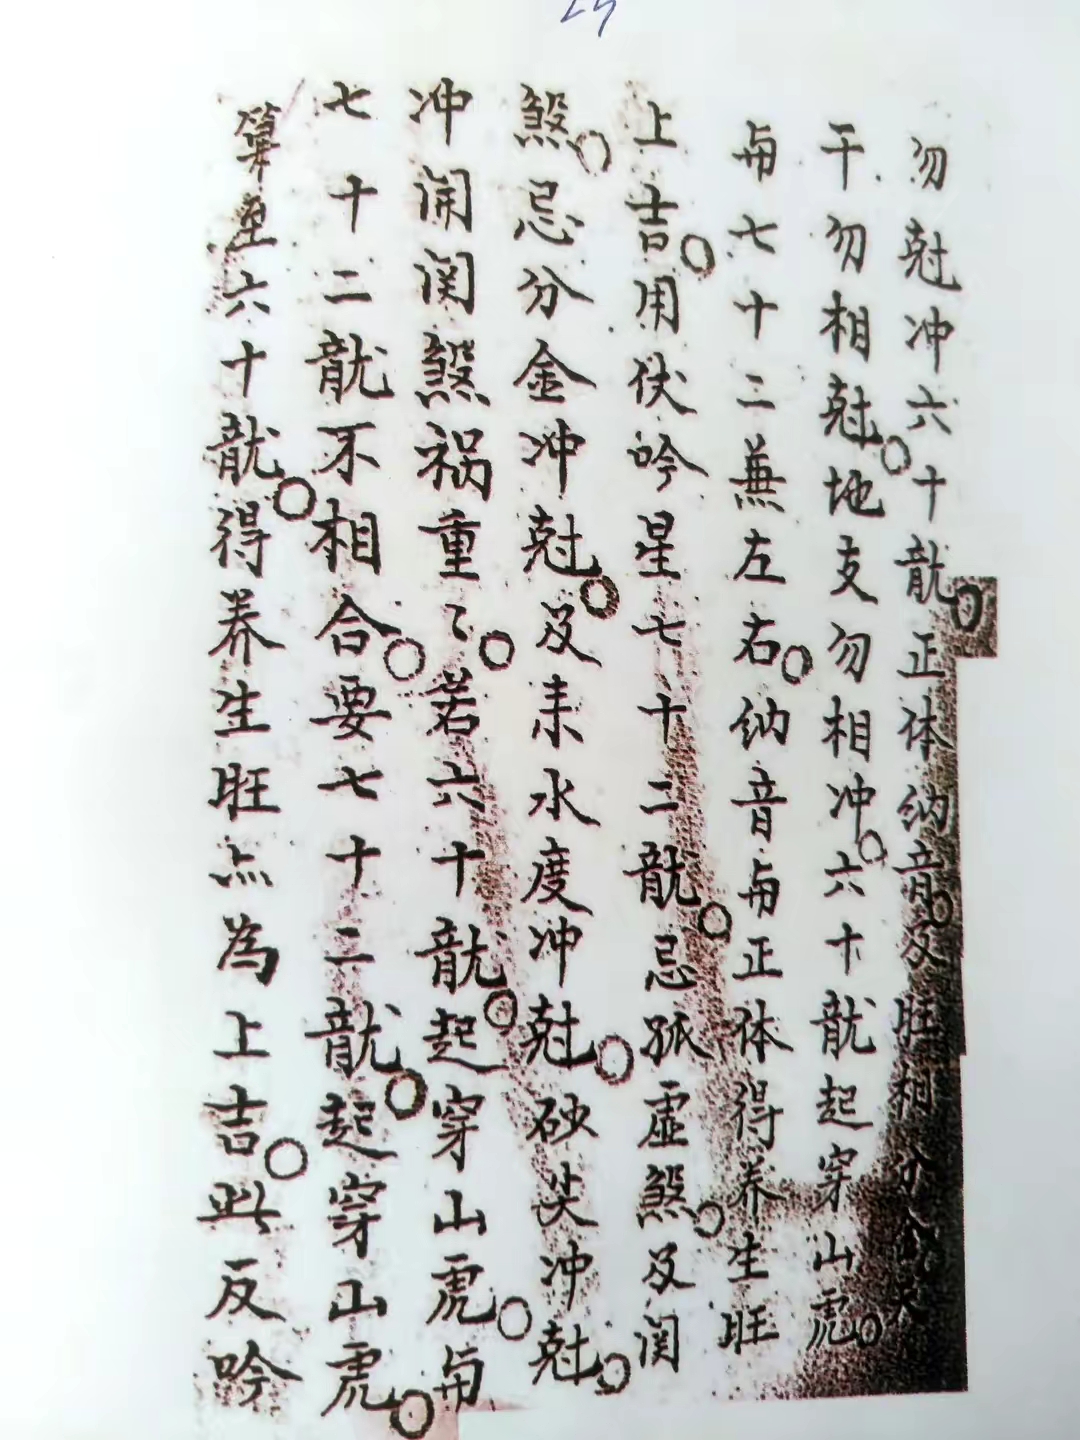 勿尅冲六十龍。正体纳音。及旺相分金天
干勿相尅。地支勿相冲。六十龍起穿山虎。
与七十二兼左右。纳音与正体得养生旺
上吉。用伏吟星七十二龍。忌孤虚煞。及関
煞。忌分金冲尅。及来水度冲尅。砂尖冲尅。
冲開関煞祸重了。若六十龍。起穿山虎。与
七十二龍不相合。要七十二龍。起穿山虎。
算至六十龍。得养生旺点為上吉。此反吟